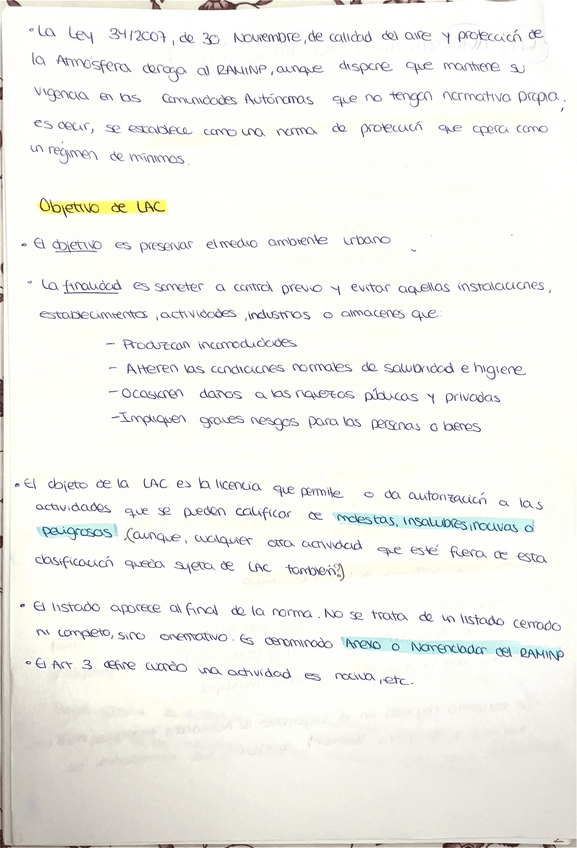 • La Ley 34/2007, de 30 Noviembre, de calidad del aire y protección de
la Atmósfera deroga al RAMINP, aunque dispone que mantiene su
vigencia en las Comunidades Autónomas que no tengan normativa propia;
es decir, se establece como una norma de protección que opera como
un régimen de mínimos.
Objetivo de LAC
• El objetivo es preservar el medio ambiente urbano
• La finalidad es someter a control previo y evitar aquellas instalaciones,
establecimientos, actividades, industrias o almacenes que:
– Produzcan incomodidades
– Alteren las condiciones normales de salubridad e higiene
– Ocasionen daños a las riquezas públicas y privadas
– Impliquen graves riesgos para las personas o bienes
• El objeto de la LAC es la licencia que permite o da autorización a las
actividades que se pueden calificar de molestas, insalubres, nocivas o
peligrosas (aunque, cualquier otra actividad que esté fuera de esta
clasificación queda sujeta de LAC también?)
• El listado aparece al final de la norma. No se trata de un listado cerrado
ni completo, sino enemativo. Es denominado Anexo o Nomenclador del RAMINP
• El Art. 3 define cuando una actividad es nociva, etc.